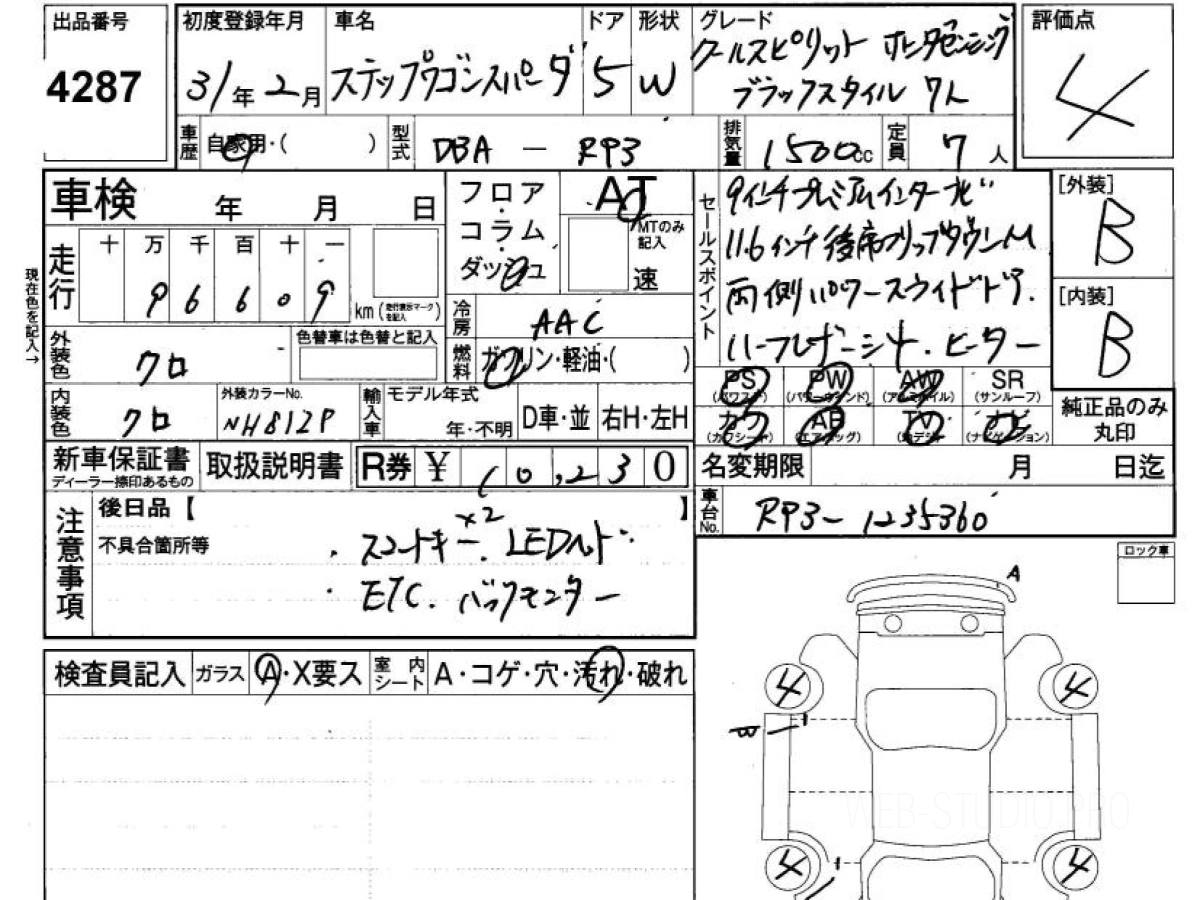 出品番号
4287
初度登録年月
31年2月
車名
ステップワゴンスパーダ
ドア
5
形状
W
グレード
クールスピリット ホンダセンシング
ブラックスタイル 7人
評価点
4
車歴
自家用・( )
型式
DBA - RP3
排気量
1500cc
定員
7人
車検 年 月 日
フロア・コラム・ダッシュ
AT
MTのみ記入
速
セールスポイント
9インチプレミアムインターナビ
11.6インチ後席フリップダウンM
両側パワースライドドア.
ハーフレザーシート. ヒーター
[外装]
B
[内装]
B
現在色を記入→
走行
十 万 千 百 十 一
96609
km(走行表示マークを記入)
冷房
AAC
外装色
クロ
色替車は色替と記入
燃料
ガソリン・軽油・( )
内装色
クロ
外装カラーNo.
NH812P
輸入車
モデル年式
年・不明
D車・並
右H・左H
PS (パワステ)
PW (パワーウィンド)
AW (アルミホイル)
SR (サンルーフ)
カワ (カワシート)
AB (エアバッグ)
TV (地デジ)
ナビ (ナビゲーション)
純正品のみ
丸印
新車保証書
ディーラー捺印あるもの
取扱説明書
R券 ¥ 10,230
名変期限 月 日迄
車台No.
RP3-1235360
注意事項
後日品【 】
不具合箇所等
・スマートキー×2. LEDヘッド
・ETC. バックモニター
ロック車
A
検査員記入
ガラス
A・X要ス
室内シート
A・コゲ・穴・汚れ・破れ
4
4
W 1
WEB-STUDIO.PRO
4
1
4